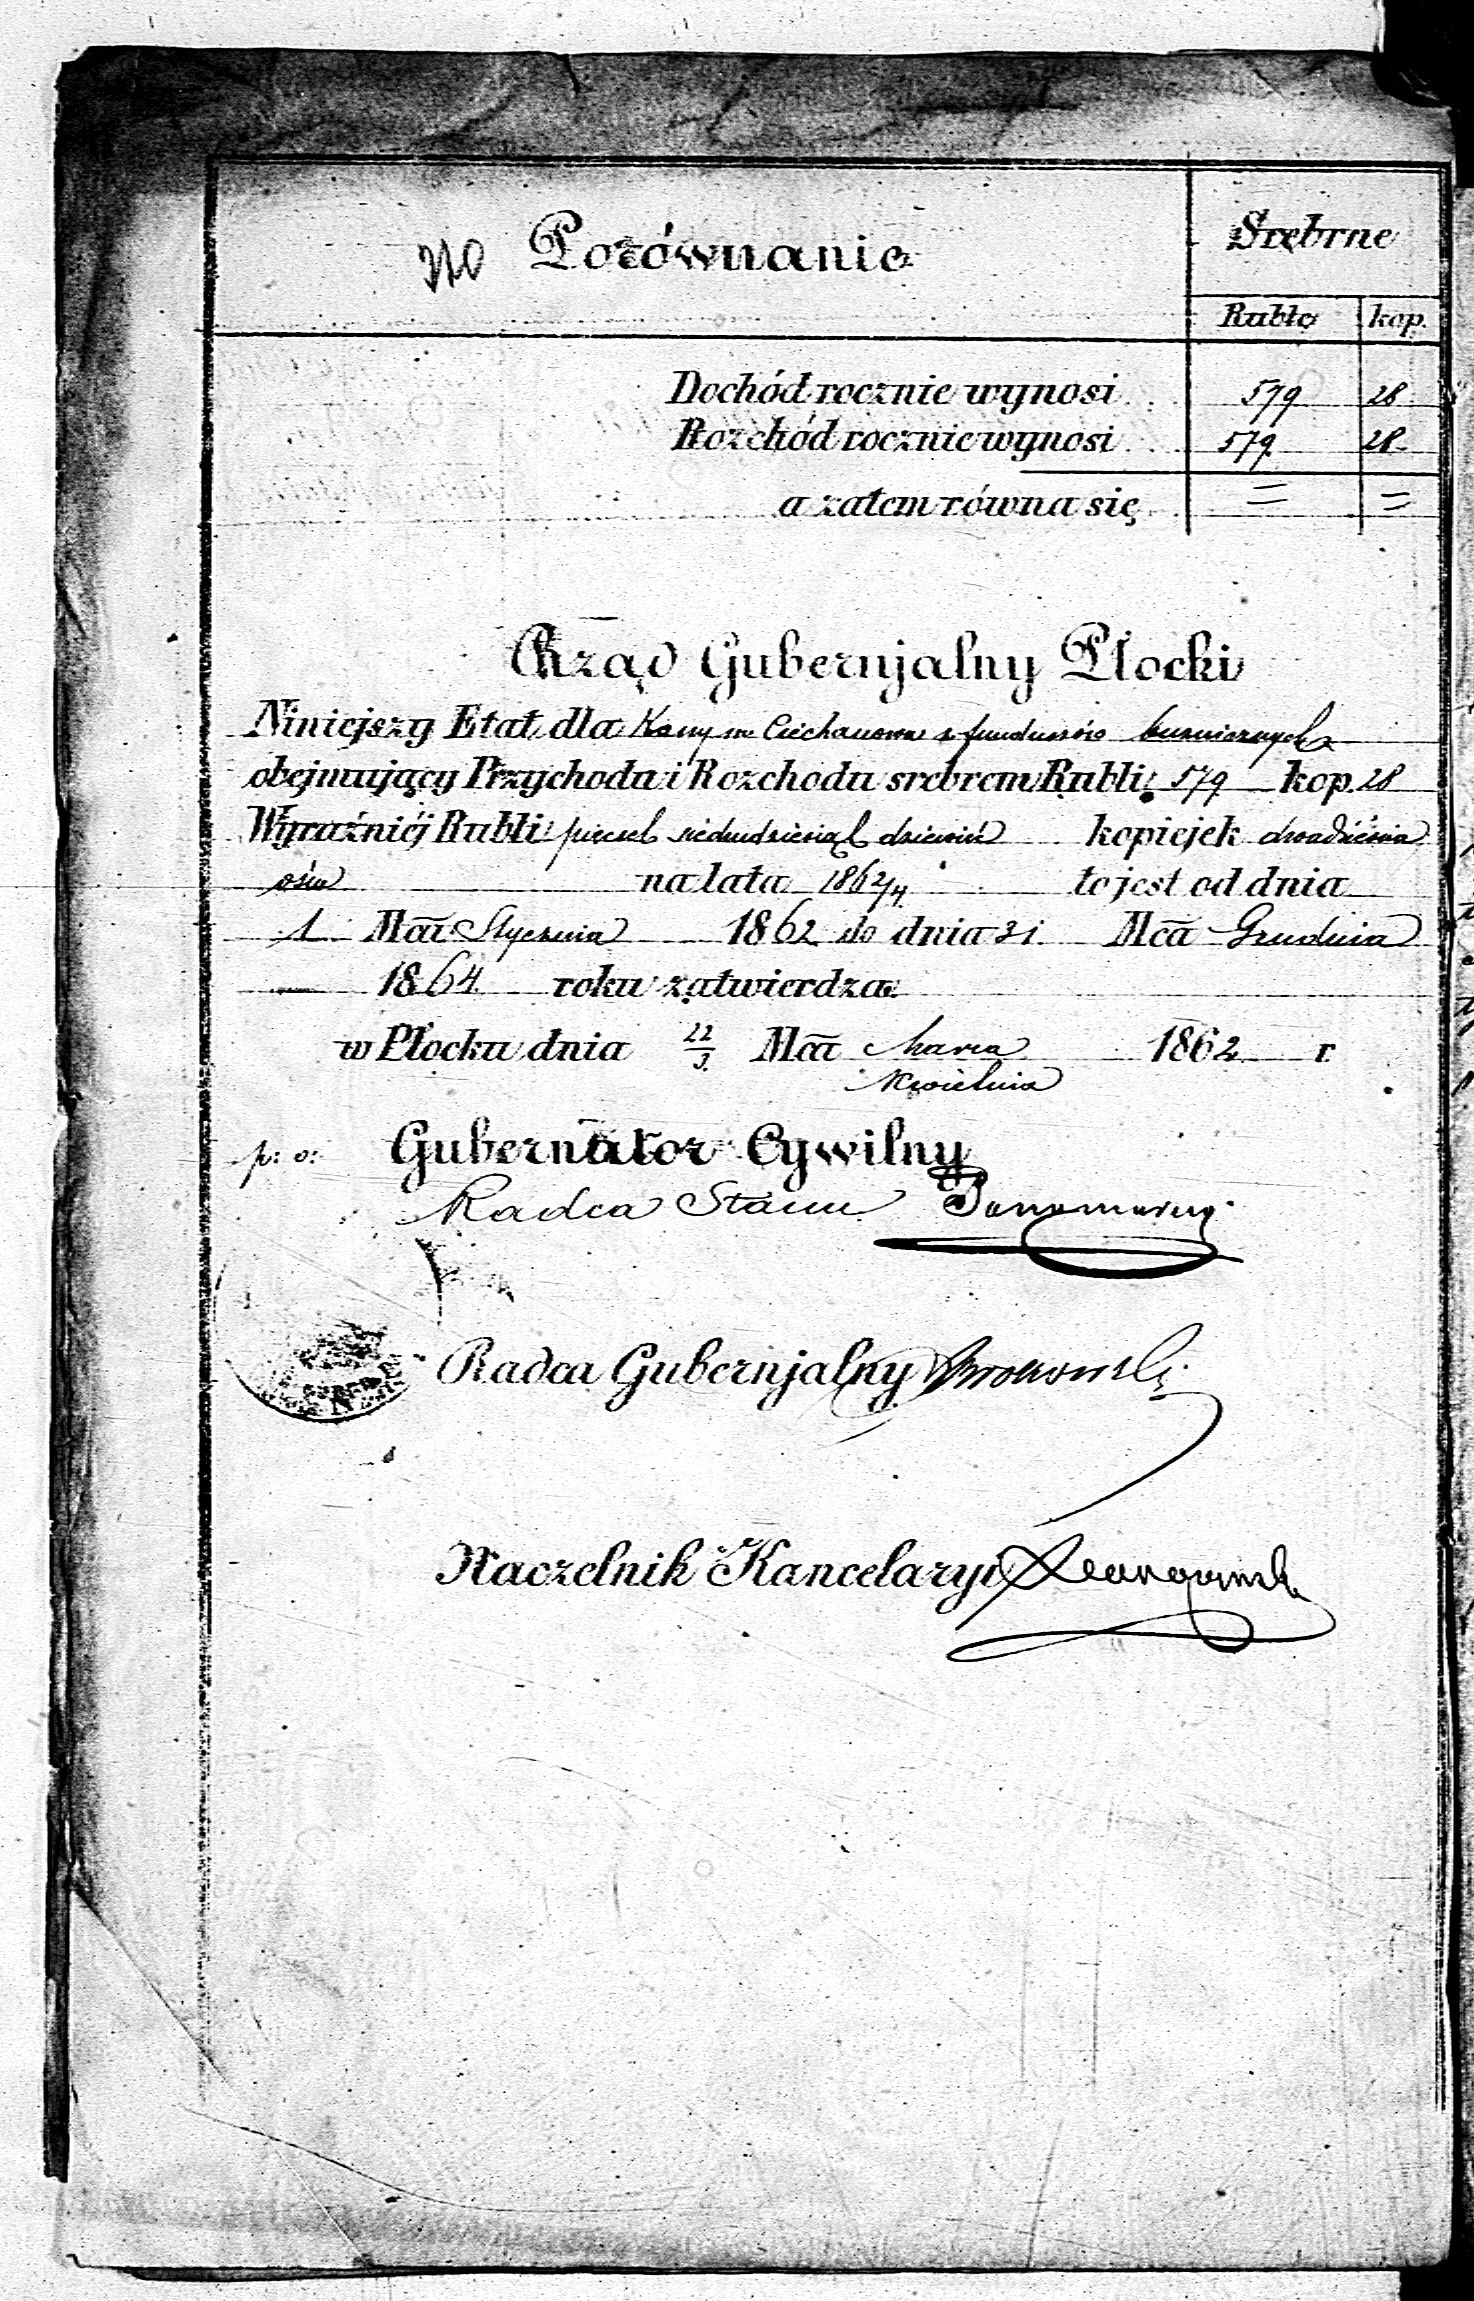 Porównanie
Srebrne
Ruble kop.
Dochód rocznie wynosi 579 28
Rozchód rocznie wynosi 579 28
a zatem równa się = =
Rząd Gubernjalny Płocki
Niniejszy Etat dla Kasy m Ciechanowa z funduszów
obejmujący Przychodu i Rozchodu srebrem Rubli 579 kop. 28
Wyraźniéj Rubli pięćset siedmdziesiąt dziewięć kopiejek dwadzieścia
ośm na lata 1862/4 to jest od dnia
1 Mca Stycznia 1862 do dnia 31 Mca Grudnia
1864 roku zatwierdza.
w Płocku dnia 22/3 Mca Marca 1862 r
Kwietnia
p: o: Gubernator Cywilny
Radca Stanu
Radca Gubernjalny
Naczelnik Kancelaryi